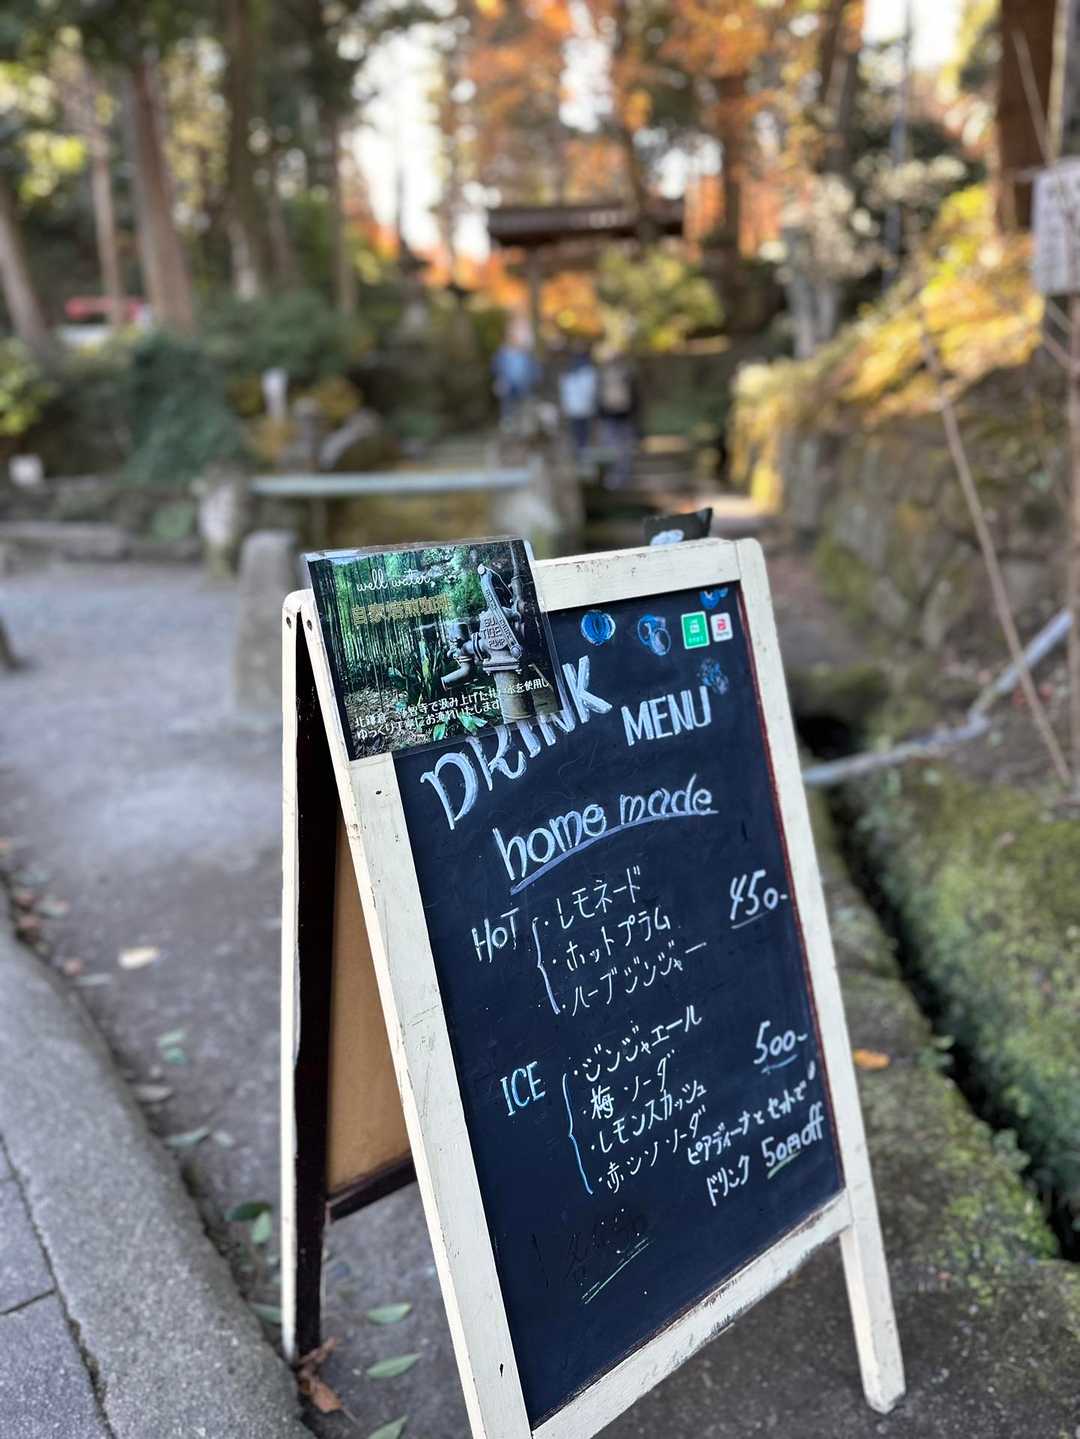 well water
自家焙煎珈琲
SUN
TIGER
PUMP
北鎌倉・浄智寺で汲み上げた井戸水を使用し
ゆっくり丁寧にお淹れいたします
DRINK MENU
home made
HOT
・レモネード
・ホットプラム
・ハーブジンジャー
450-
ICE
・ジンジャエール
・梅ソーダ
・レモンスカッシュ
・赤シソソーダ
500-
ピアディーナとセットで
ドリンク 50円off